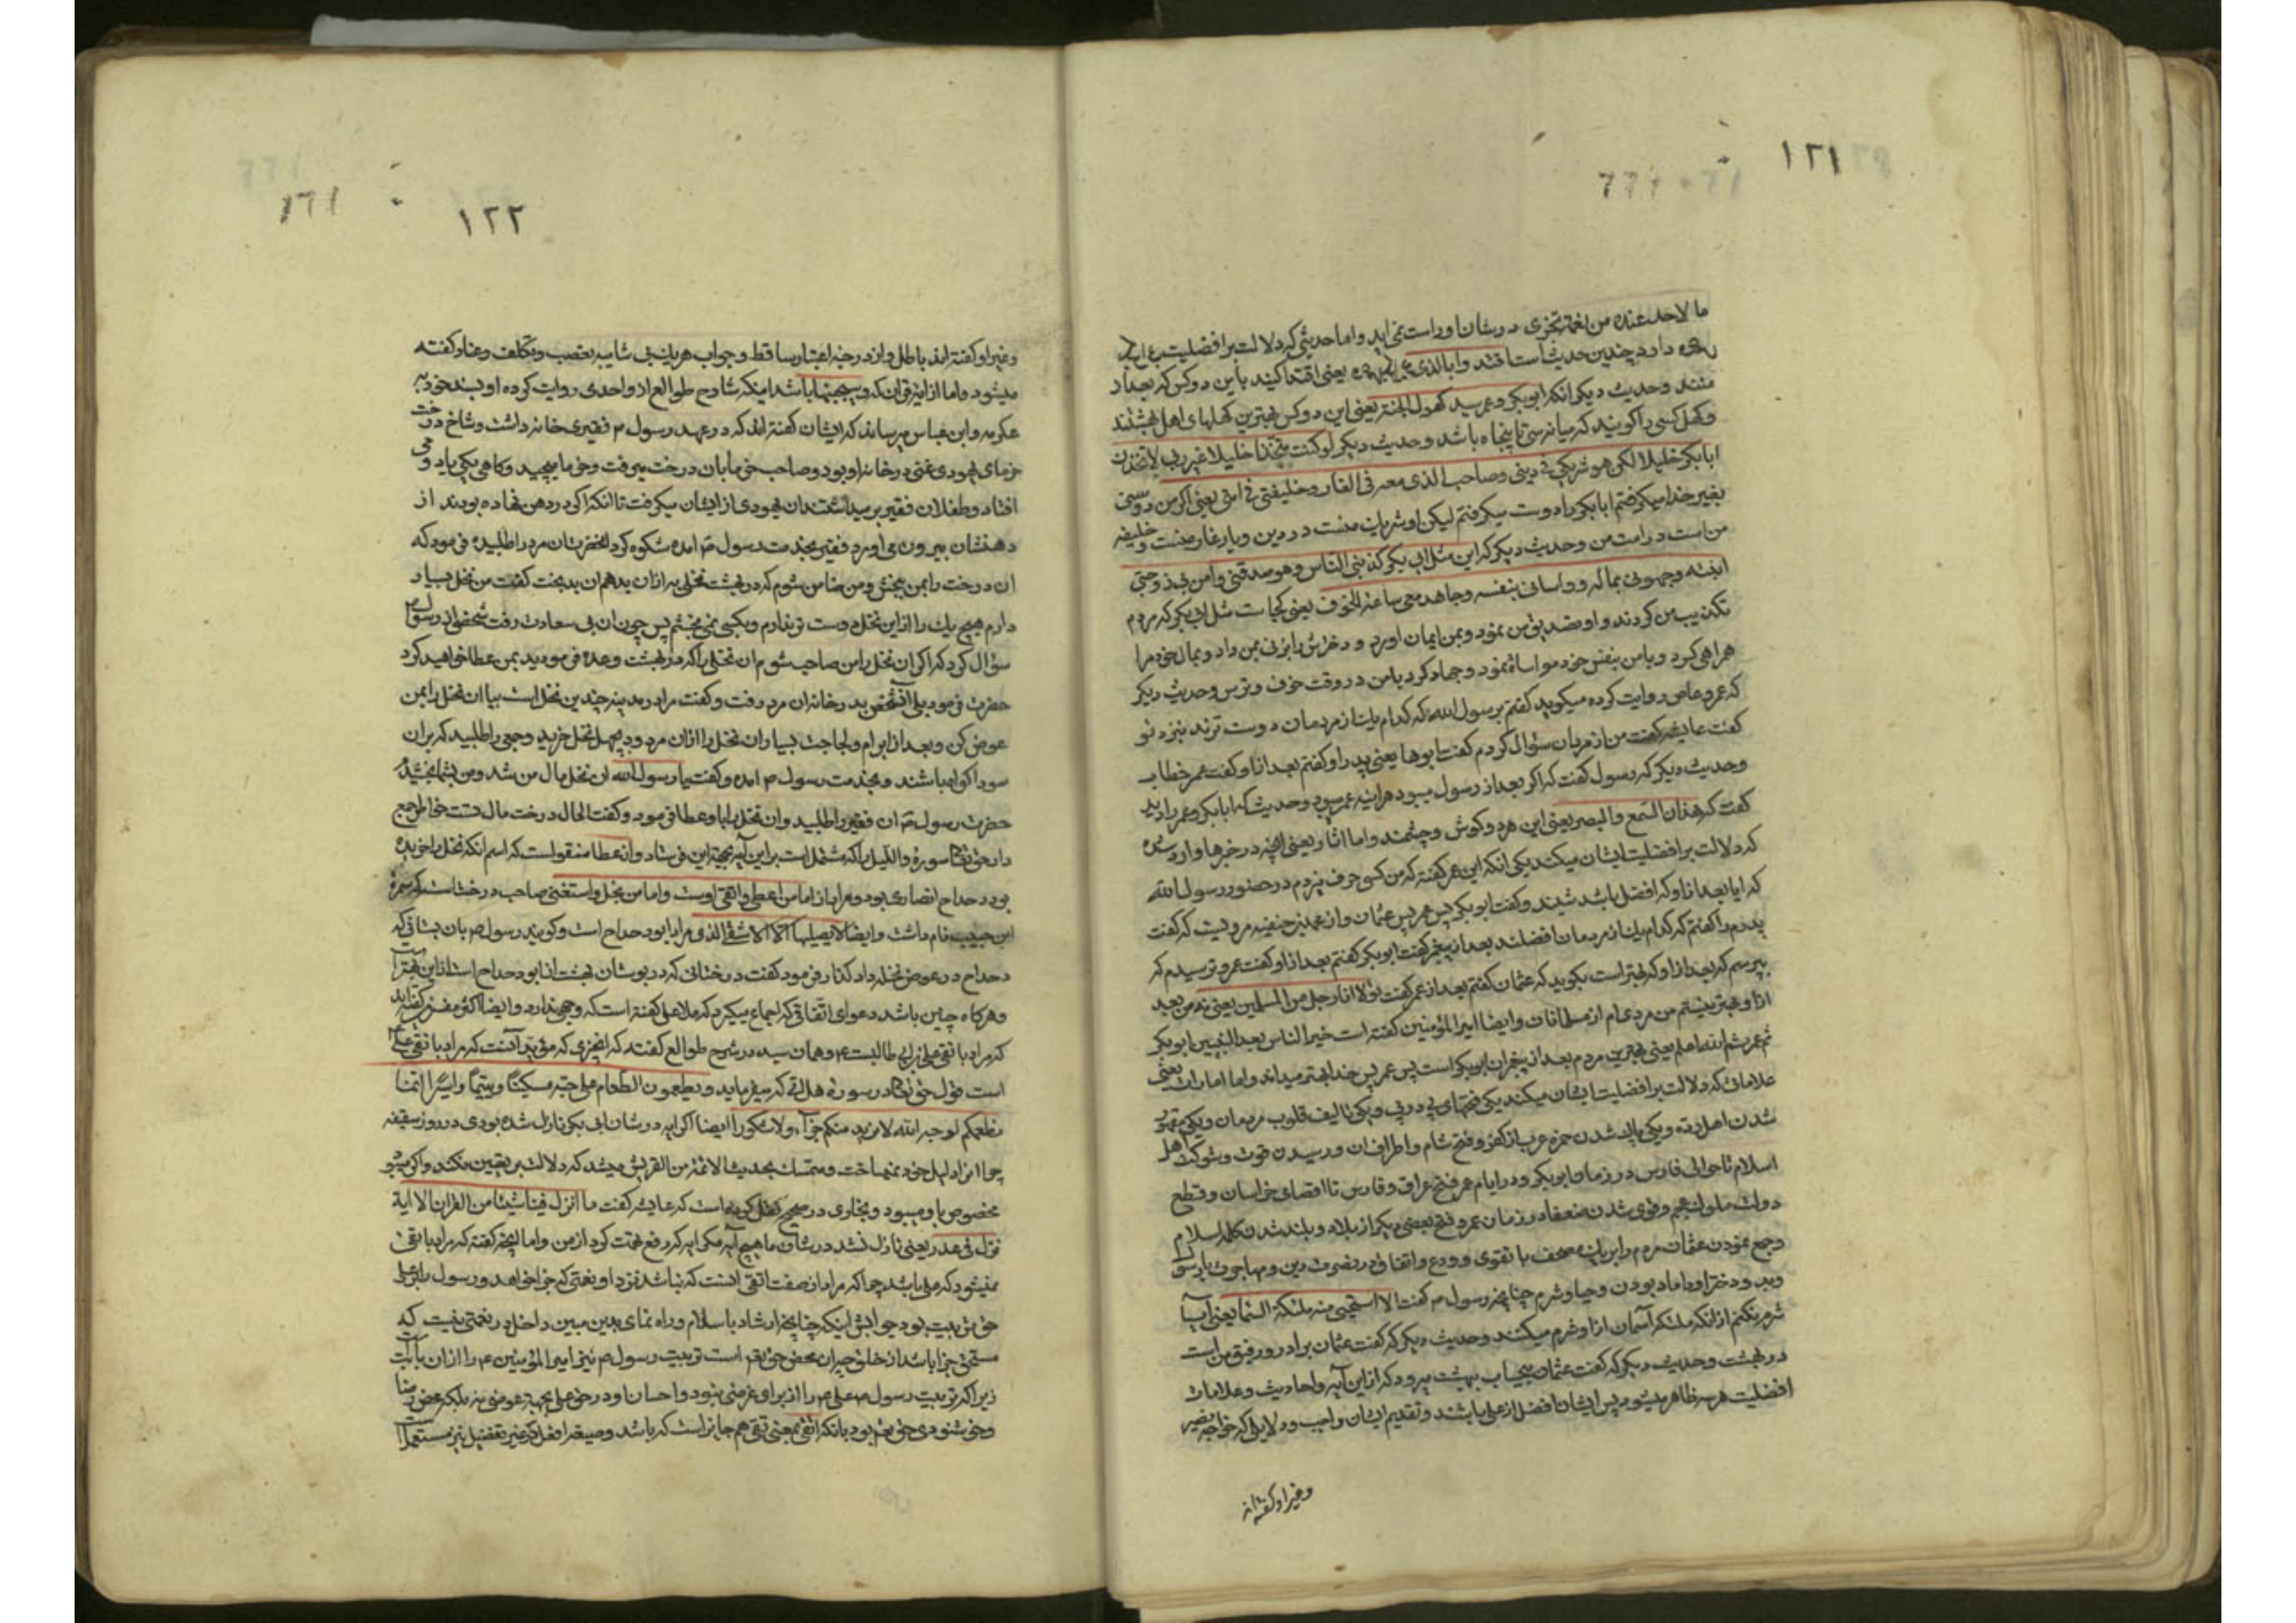 ١٢١
ما لاحد عنده من نعمة تجزی در شان او راست نمی اید واما حدیثی که دلالت بر افضلیت
دارد چندین حدیث است اقتدوا بالذی یعنی اقتدا کنید باین دو کس که بعد از
منند وحدیث دیگر انکه ابو بکر وعمر سید کهول الجنة یعنی این دو کس بهترین کهلهای اهل بهشتند
وکهل کسی را گویند که میانه سی تا پنجاه باشد وحدیث دیگر لو کنت متخذا خلیلا غیر ربی لاتخذت
ابابکر خلیلا لکن هو شریکی فی دینی وصاحب الذی معه فی الغار وخلیفتی فی امتی یعنی اگر من دوستی
بغیر خدا میگرفتم ابابکر را دوست میگرفتم لیکن او شریک منست در دین ویار غار منست وخلیفه
من است در امت من وحدیث دیگر که این مثل ابی بکر کذبنی الناس وهو صدقنی وامن بی وزوجنی
ابنته وجهزنی بماله وواسانی بنفسه وجاهد معی ساعة الخوف یعنی کجاست مثل ابی بکر که مردم
تکذیب من کردند و او تصدیق من نمود وبمن ایمان اورد و دخترش را بزنی بمن داد وبمال خود مرا
همراهی کرد وبا من بنفس خود مواساة نمود وجهاد کرد با من در وقت خوف وترس وحدیث دیگر
که عمرو عاص روایت کرده میگوید گفتم برسول الله که کدام یک از مردمان دوست ترند نزد تو
گفت عایشه گفت من از مردان سؤال کردم گفت ابوها یعنی پدر او گفتم بعد از او گفت عمر خطاب
وحدیث دیگر که رسول گفت که اگر بعد از رسول میبود هراینه عمر میبود وحدیث که ابابکر وعمر را دید
گفت که هذان السمع والبصر یعنی این هر دو گوش وچشمند واما اثار یعنی انچه در خبرها وارد شده
که دلالت بر افضلیت ایشان میکند یکی انکه ابن عمر گفته که من حرف میزدم در حضور رسول الله
که ایا بعد از او که افضل باشد شنید وگفت ابو بکر پس عمر پس عثمان واز محمد بن حنفیه مرویست که گفت
پدرم را گفتم که کدام یک از مردمان افضلند بعد از پیغمبر گفت ابو بکر گفتم بعد از او گفت عمر وترسیدم که
بپرسم که بعد از او که بهتر است بگوید که عثمان گفتم بعد از عمر گفت انا رجل من المسلمین یعنی نه من بعد
ازو بهتر نیستم من مردی ام از مسلمانان وایضا امیر المؤمنین گفته است خیر الناس بعد النبیین ابو بکر
ثم عمر ثم الله اعلم یعنی بهترین مردم بعد از پیغمبران ابو بکر است پس عمر پس خدا بهتر میداند واما امارات یعنی
علاماتی که دلالت بر افضلیت ایشان میکند یکی فتحهای پی در پی ویکی تالیف قلوب مردمان ویکی مقهور
شدن اهل رده ویکی پاک شدن جزیره عرب از کفر وفتح شام واطراف ان ورسیدن قوت وشوکت اهل
اسلام تا حوالی فارس در زمان ابو بکر ودر ایام عمر فتح عراق وفارس تا اقصای خراسان وقطع
دولت ملوک عجم وقوی شدن ضعفا در زمان عمر وفتح بعضی دیگر از بلاد وبلند شدن کلمه اسلام
وجمع نمودن عثمان مردم را بر یک مصحف با تقوی وورع واتفاق در نصرت دین ومهاجرت با رسول
وبدو دختر او داماد بودن وحیا وشرم چنانچه رسول م گفت الا استحیی منه ملئکة السماء یعنی ایا
شرم نکنم از انکه ملئکه آسمان ازو شرم میکنند وحدیث دیگر که گفت عثمان برادر ورفیق من است
در بهشت وحدیث دیگر که گفت عثمان بیحساب ببهشت میرود که از این آیه واحادیث وعلامات
افضلیت هر سه ظاهر میشود پس ایشان افضل از علی باشند وتقدیم ایشان واجب ودلایلی که خواجه نصیر
وغیر او گفته اند
١٦١
١٢٢
وغیر او گفته اند باطل و از درجه اعتبار ساقط وجواب هر یک بی شایبه تعصب وتکلف وعناد گفته
میشود واما از ایه قران که وسیجنبها باشد اینکه شارح طوالع از واحدی روایت کرده او بسند خود به
عکرمه وابن عباس میرساند که ایشان گفته اند که در عهد رسول م فقیری خانه داشت وشاخ درخت
خرمای یهودی غنی در خانه او بود وصاحب خرما بان درخت میرفت وخرما میچید وگاهی یکی یا دو می
افتاد وطفلان فقیر بر میداشتند ان یهودی از ایشان میگرفت تا انکه اگر در دهن نهاده بودند از
دهنشان بیرون می اورد فقیر بخدمت رسول م امده شکوه کرد انحضرت ان مرد را طلبیده فرمود که
ان درخت را بمن ببخش ومن ضامن شوم که در بهشت نخلی به از ان بدهم ان بدبخت گفت من نخل بسیار
دارم هیچ یک را از این نخل دوست تر ندارم وبکسی نمی بخشم پس چون ان بی سعادت رفت شخصی از رسول م
سؤال کرد که اگر ان نخل را من صاحب شوم ان نخلی را که در بهشت وعده فرمودید بمن عطا خواهید کرد
حضرت فرمود بلی آنشخص بدر خانه ان مرد رفت وگفت مرا در مدینه چندین نخل است بیا ان نخل را بمن
عوض کن وبعد از ابرام ولجاجت بسیار ان نخل را از ان مردود بچهل نخل خرید وجمعی را طلبید که بر ان
سودا گواه باشند وبخدمت رسول م امده وگفت یا رسول الله ان نخل مال من شد ومن بشما بخشیدم
حضرت رسول م ان فقیر را طلبید وان نخل را باو عطا فرمود وگفت الحال درخت مال تست خاطر جمع
دار حق تعالی سورة واللیل را که مشتمل است بر این آیه بجهة این فرستاد واز عطا منقول است که اسم انکه نخل را خریده
بود دحداح انصاری بود ومراد از اما من اعطی واتقی اوست واما من بخل واستغنی صاحب درخت است که سمرة
ابن حبیب نام داشت وایضا لا یصلیها الا الاشقی الذی مراد ابو دحداح است وگویند رسول م بان بستانی که
دحداح در عوض نخله داد گذار فرمود گفت درختانی که در بوستان بهشت از ابو دحداح است از این بهتر است
وهرگاه چنین باشد دعوای اتفاقی که اجماع میگیرد که ملا علی گفته است که وجهی ندارد وایضا اکثر مفسرین گفته اند
که مراد باتقی علی بن ابی طالبست ع وهمان سید در شرح طوالع گفتند که انچیزی که مؤید آنست که مراد باتقی علی
است قول حق تعالی در سوره هل اتی که میفرماید ویطعمون الطعام علی حبه مسکینا ویتیما واسیرا انما
نطعمکم لوجه الله لا نرید منکم جزاء ولا شکورا ایضا اگر ایه در شان ابی بکر نازل شده بودی در روز سقیفه
چرا انرا دلیل خود نمیساخت ومتمسک بحدیث الائمة من القریش میشد که دلالت بر تعیین نکند واگر میشد
مخصوص باو میبود وبخاری در صحیح نقل کرده است که عایشه گفت ما انزل فینا شیئا من القران الا ایة
نزل فی عذری یعنی نازل نشد در شان ما هیچ آیه مگر ایه که رفع تهمت کرد از من واما انچه گفته که مراد باتقی
نمیشود که علی باشد چرا که مراد از صفت اتقی انست که نباشد نزد او نعمتی که جزا خواهد ورسول را بر علی
حق تربیت بود جوابش اینکه چنانچه ارشاد باسلام وراه نمای بدین مبین داخل در نعمتی نیست که
مستحق جزا باشد از خلق جبران محض حق تعم است تربیت رسول م نیز امیر المؤمنین ع را از ان بابست
زیرا که تربیت رسول م علی م را از برای غرضی نبود واحسان او در حق علی بجهة عوضی نه بلکه محض رضا
وخوشنودی حق تعم بود بانکه اتقی بمعنی تقی هم جایز است که باشد وصیغه افعل در غیر تفضیل نیز مستعمل است